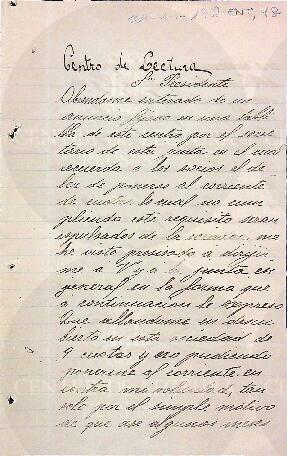 Centro de Lectura
Sr Presidente
Habiendome enterado de un
anuncio fijado en una tabli
lla de este centro por el secre
tario de esta junta en el cual
recuerda a los socios el de
ber de ponerse al corriente
de cuotas lo cual no cum
pliendo este requisito seran
expulsados de la sociedad, me
he visto precisado a dirijir
me a V y a la junta en
general en la forma que
a continuacion le expreso
Que allandome en descu
bierto en esta sociedad de
9 cuotas y no pudiendo
ponerme al corriente en
contra mi voluntad, tan
solo por el simple motivo
de que ase algunos meses